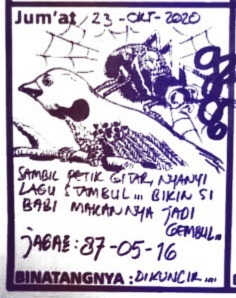 Jum'at, 23 -OKT- 2020
SAMBIL PETIK GITAR, NYANYI
LAGU STAMBUL ... BIKIN SI
BABI MAKANNYA JADI
GEMBUL...
JAGAE: 87-05-16
BINATANGNYA : DIKUNCIR....